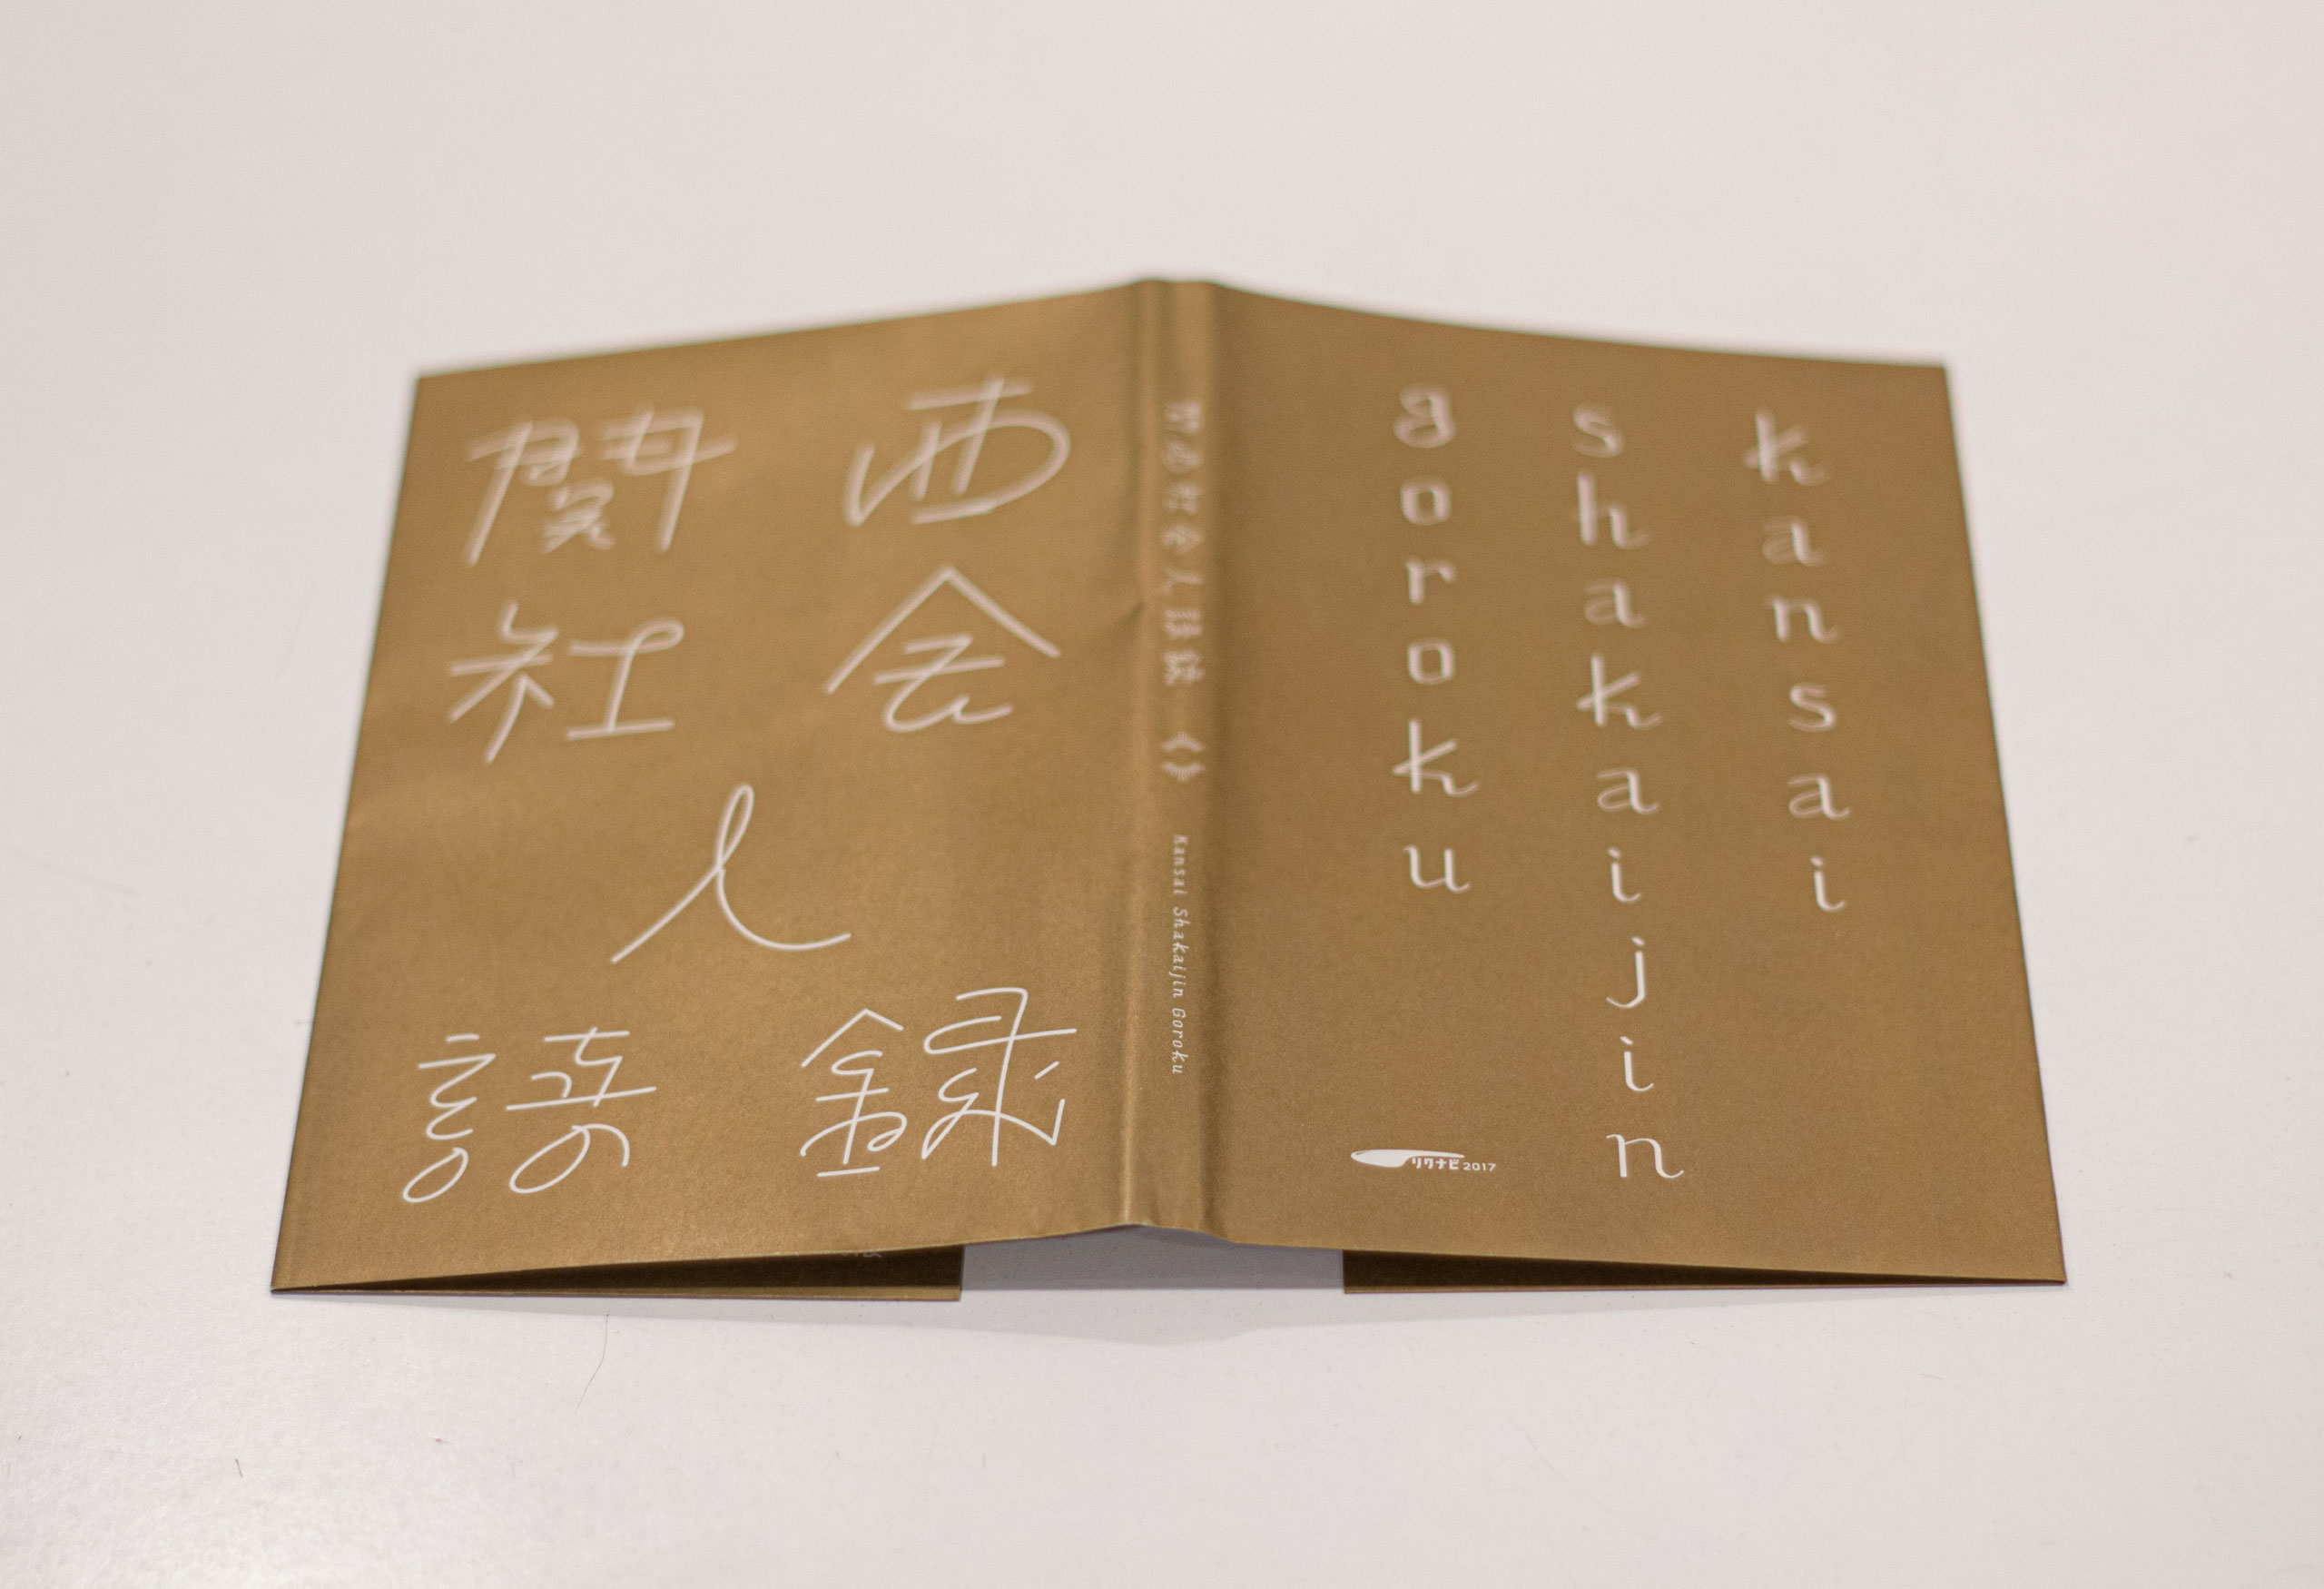 關西
社会
人
語録
関西社会人語録
Kansai Shakaijin Goroku
kansai
shakaijin
goroku
リクナビ2017